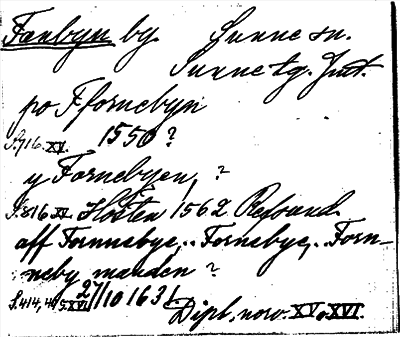 Fanbyn by. Sunne sn.
Sunne tg. Jmt.
po Ffornebyn
S. 716. XV. 1550?
y Fornebyen, ?
S. 816 XV. Hösten 1562 Refsund
aff Fornnebye,.. Fornebye,. Forn-
neby manden ?
S. 414, XVI. 27/10 1631.
Dipl. norv. XV o. XVI.